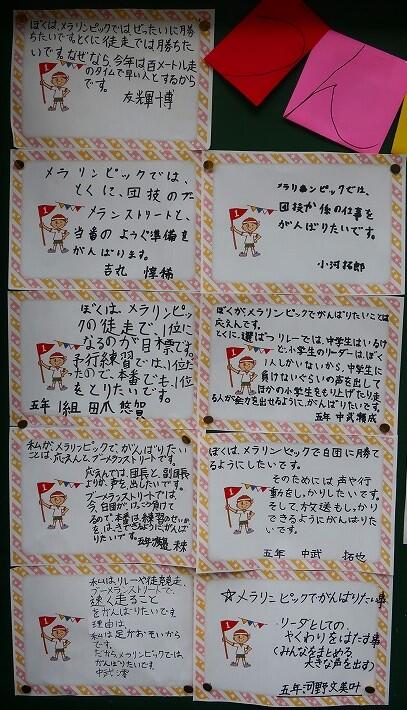 ぼくは、メラリンピックではぜったいに勝
ちたいです。とくに徒走では勝ちた
いです。なぜなら、今年は百メートル走
のタイムで早い人とするから
です。
メラリンピックでは、
とくに、団技のブー
メランストリートと、
当番のようぐ準備を
がんばります。
メラリンピックでは、
団技か係の仕事を
がんばりたいです。
小河拓郎
ぼくは、メラリンピッ
クの徒走で、1位に
なるのが目標です。
予行練習では、1位だっ
たので、本番でも、1位
をとりたいです。
五年1組 田爪 悠賀
ぼくが、メラリンピックでがんばりたいことは
応えんです。
とくに、選ばつリレーでは、中学生はいるけ
ど、小学生のリーダーは、ぼく
1人しかいないから、中学生に
負けないぐらいの声を出して
ほかの小学生をもり上げたり走
る人が全力を出せるように、がんばりたいです。
五年 中武
私が、メラリンピックで、がんばりたい
ことは、応えんと、ブーメランストリートです。
応えんでは、団長と、副団長
よりか、声を出したいです。
ブーメランストリートでは、
今、白団が、けっこう負けて
るので、本番は、練習のせいか
を、はっきできるようにがんば
りたいです。
未来
ぼくは、メラリンピックで白団に勝て
るようにしたいです。
そのためには声や行
動をしっかりしたいです。
そして、放送もしっかり
できるようにがんばりた
いです。
五年 中武 拓也
私は、リレーや徒競走、
ブーメランストリートで、
速く走ること
をがんばりたいです。
理由は、
私は足がおそいから
です。
だから、メラリンピックでは、
がんばりたいです。
☆メラリンピックでがんばりたい事
・リーダーとしての、
やくわりをはたす事
(みんなをまとめる、
大きな声を出す)
五年 河野文美叶